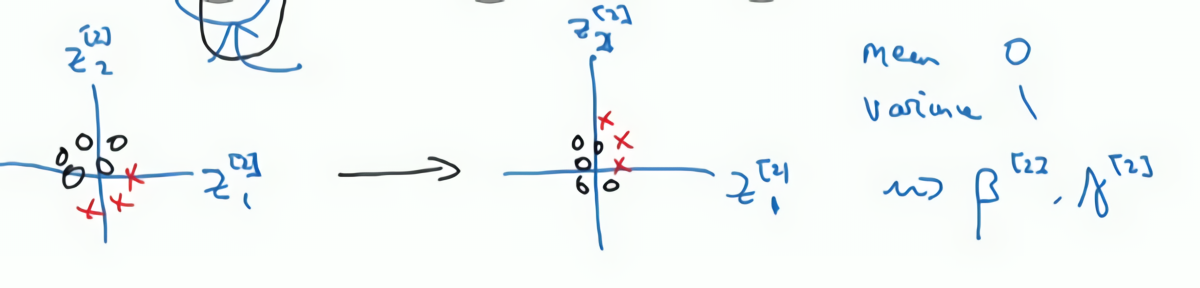 z₂^[2]
z₁^[2]
z₂^[2]
z₁^[2]
mean 0
variance 1
⇝ β^[2], γ^[2]